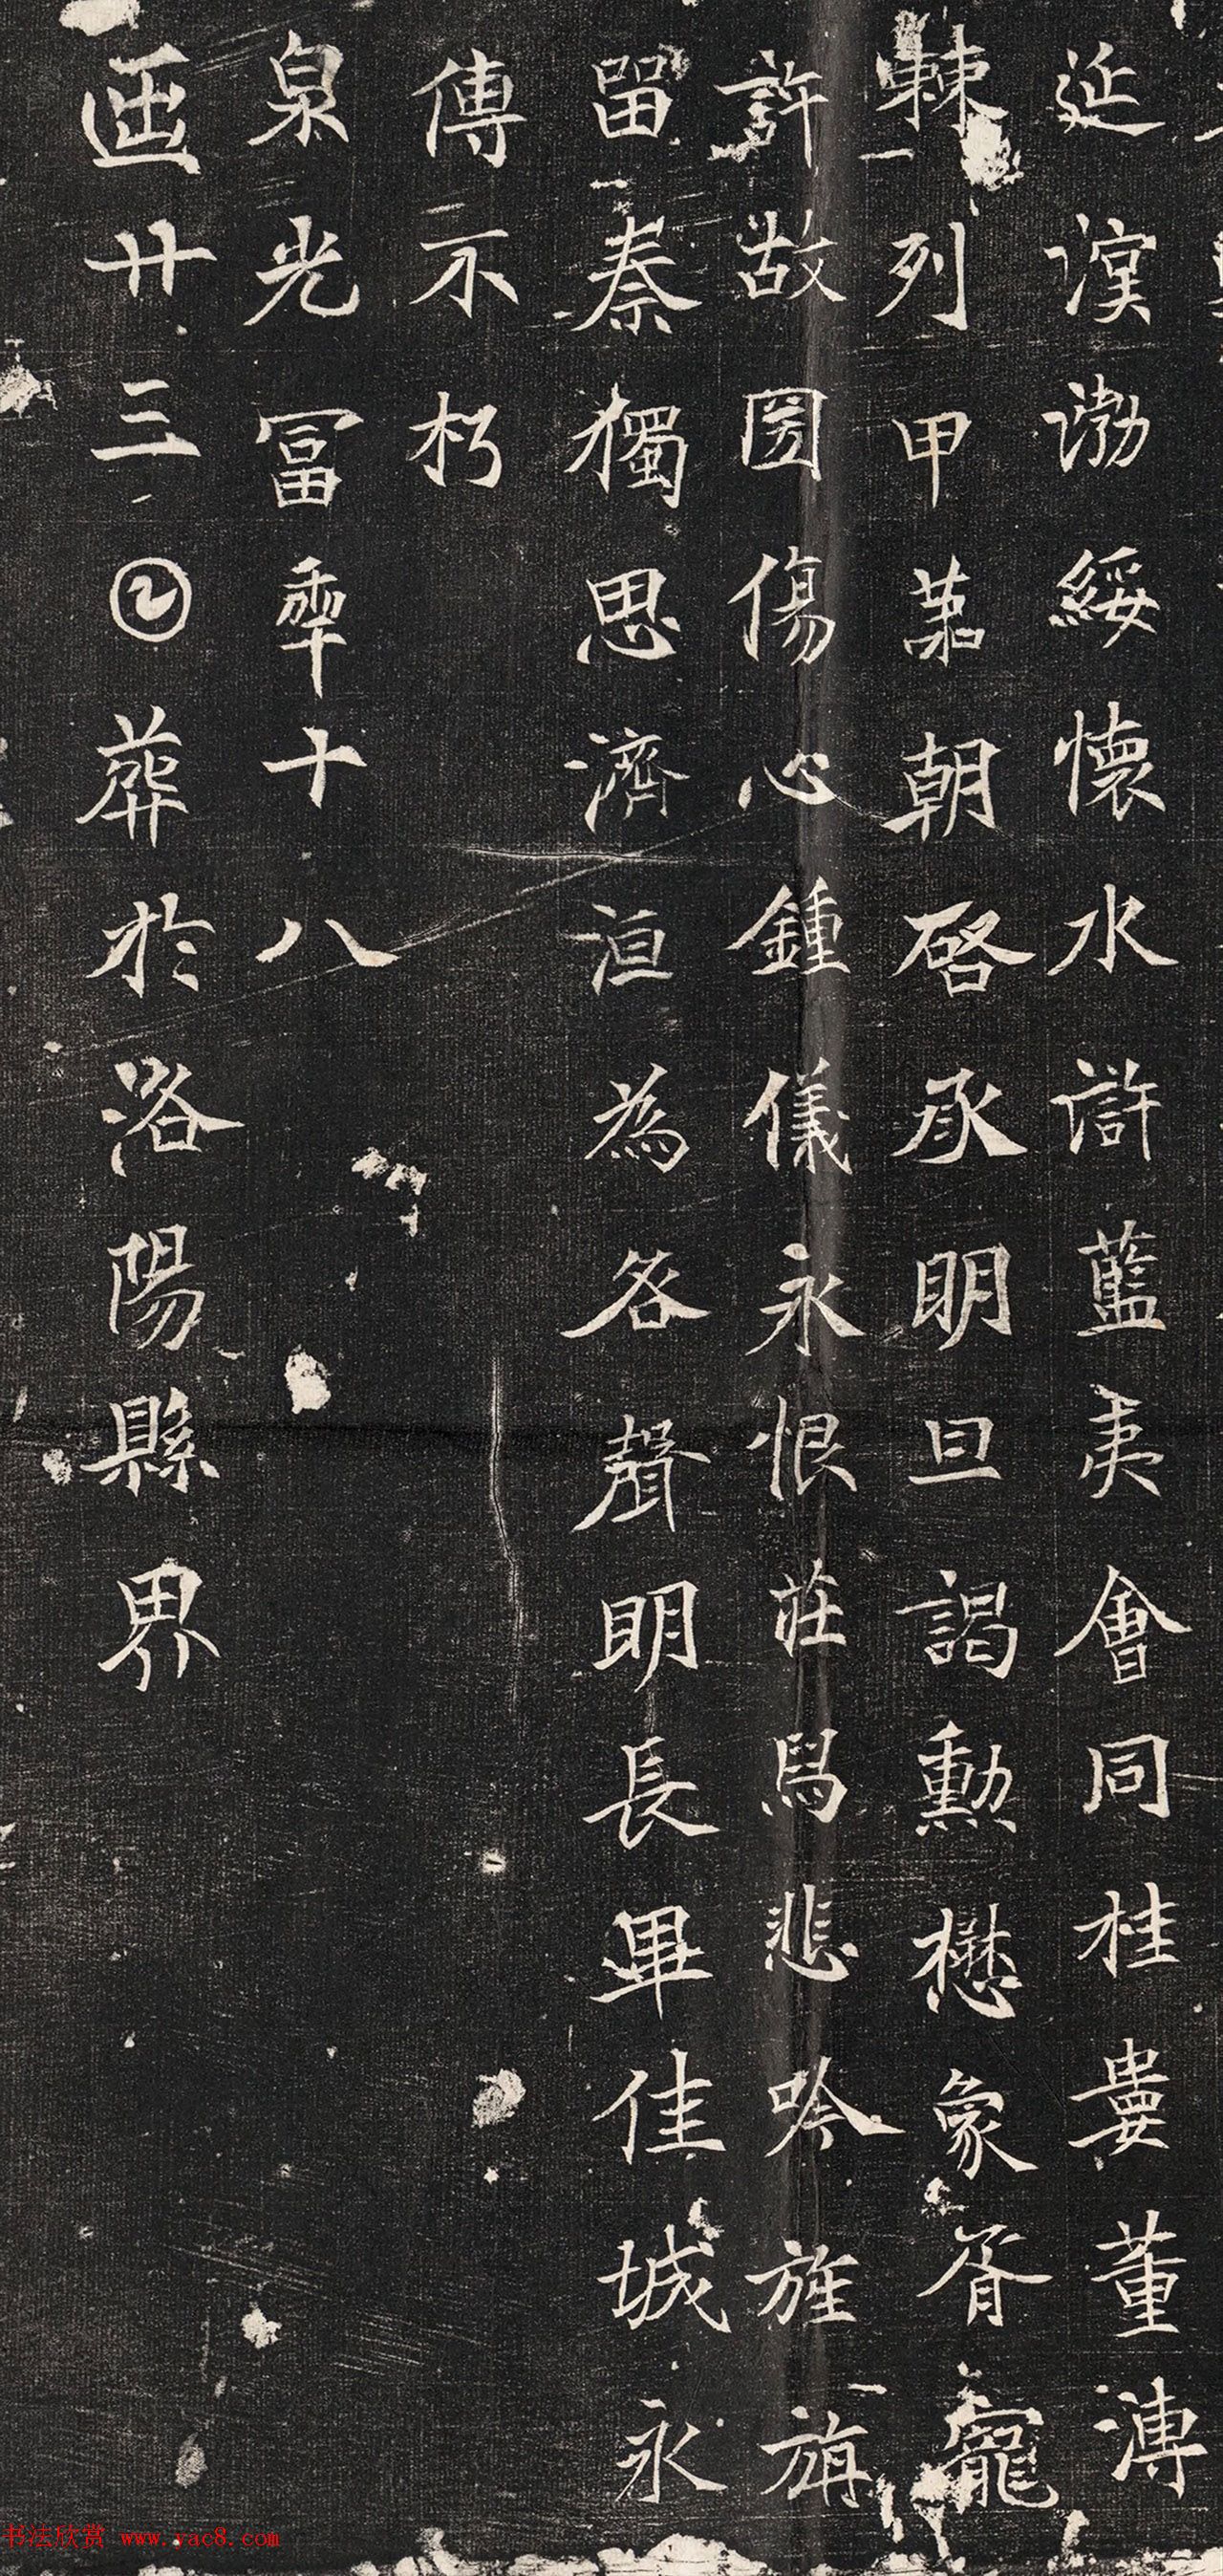 延漠渤綏懷水滸藍夷會同桂婁董溥
棘列甲苐朝啓承明旦謁勳懋象胥寵
許故圀傷心鍾儀永恨莊舄悲吟旌旃
留秦獨思濟洹為咎聲明長畢佳城永
傳不朽
泉光冨𠡦十八
𠥱廿三𡆠葬於洛陽縣界
书法欣赏 www.yac8.com